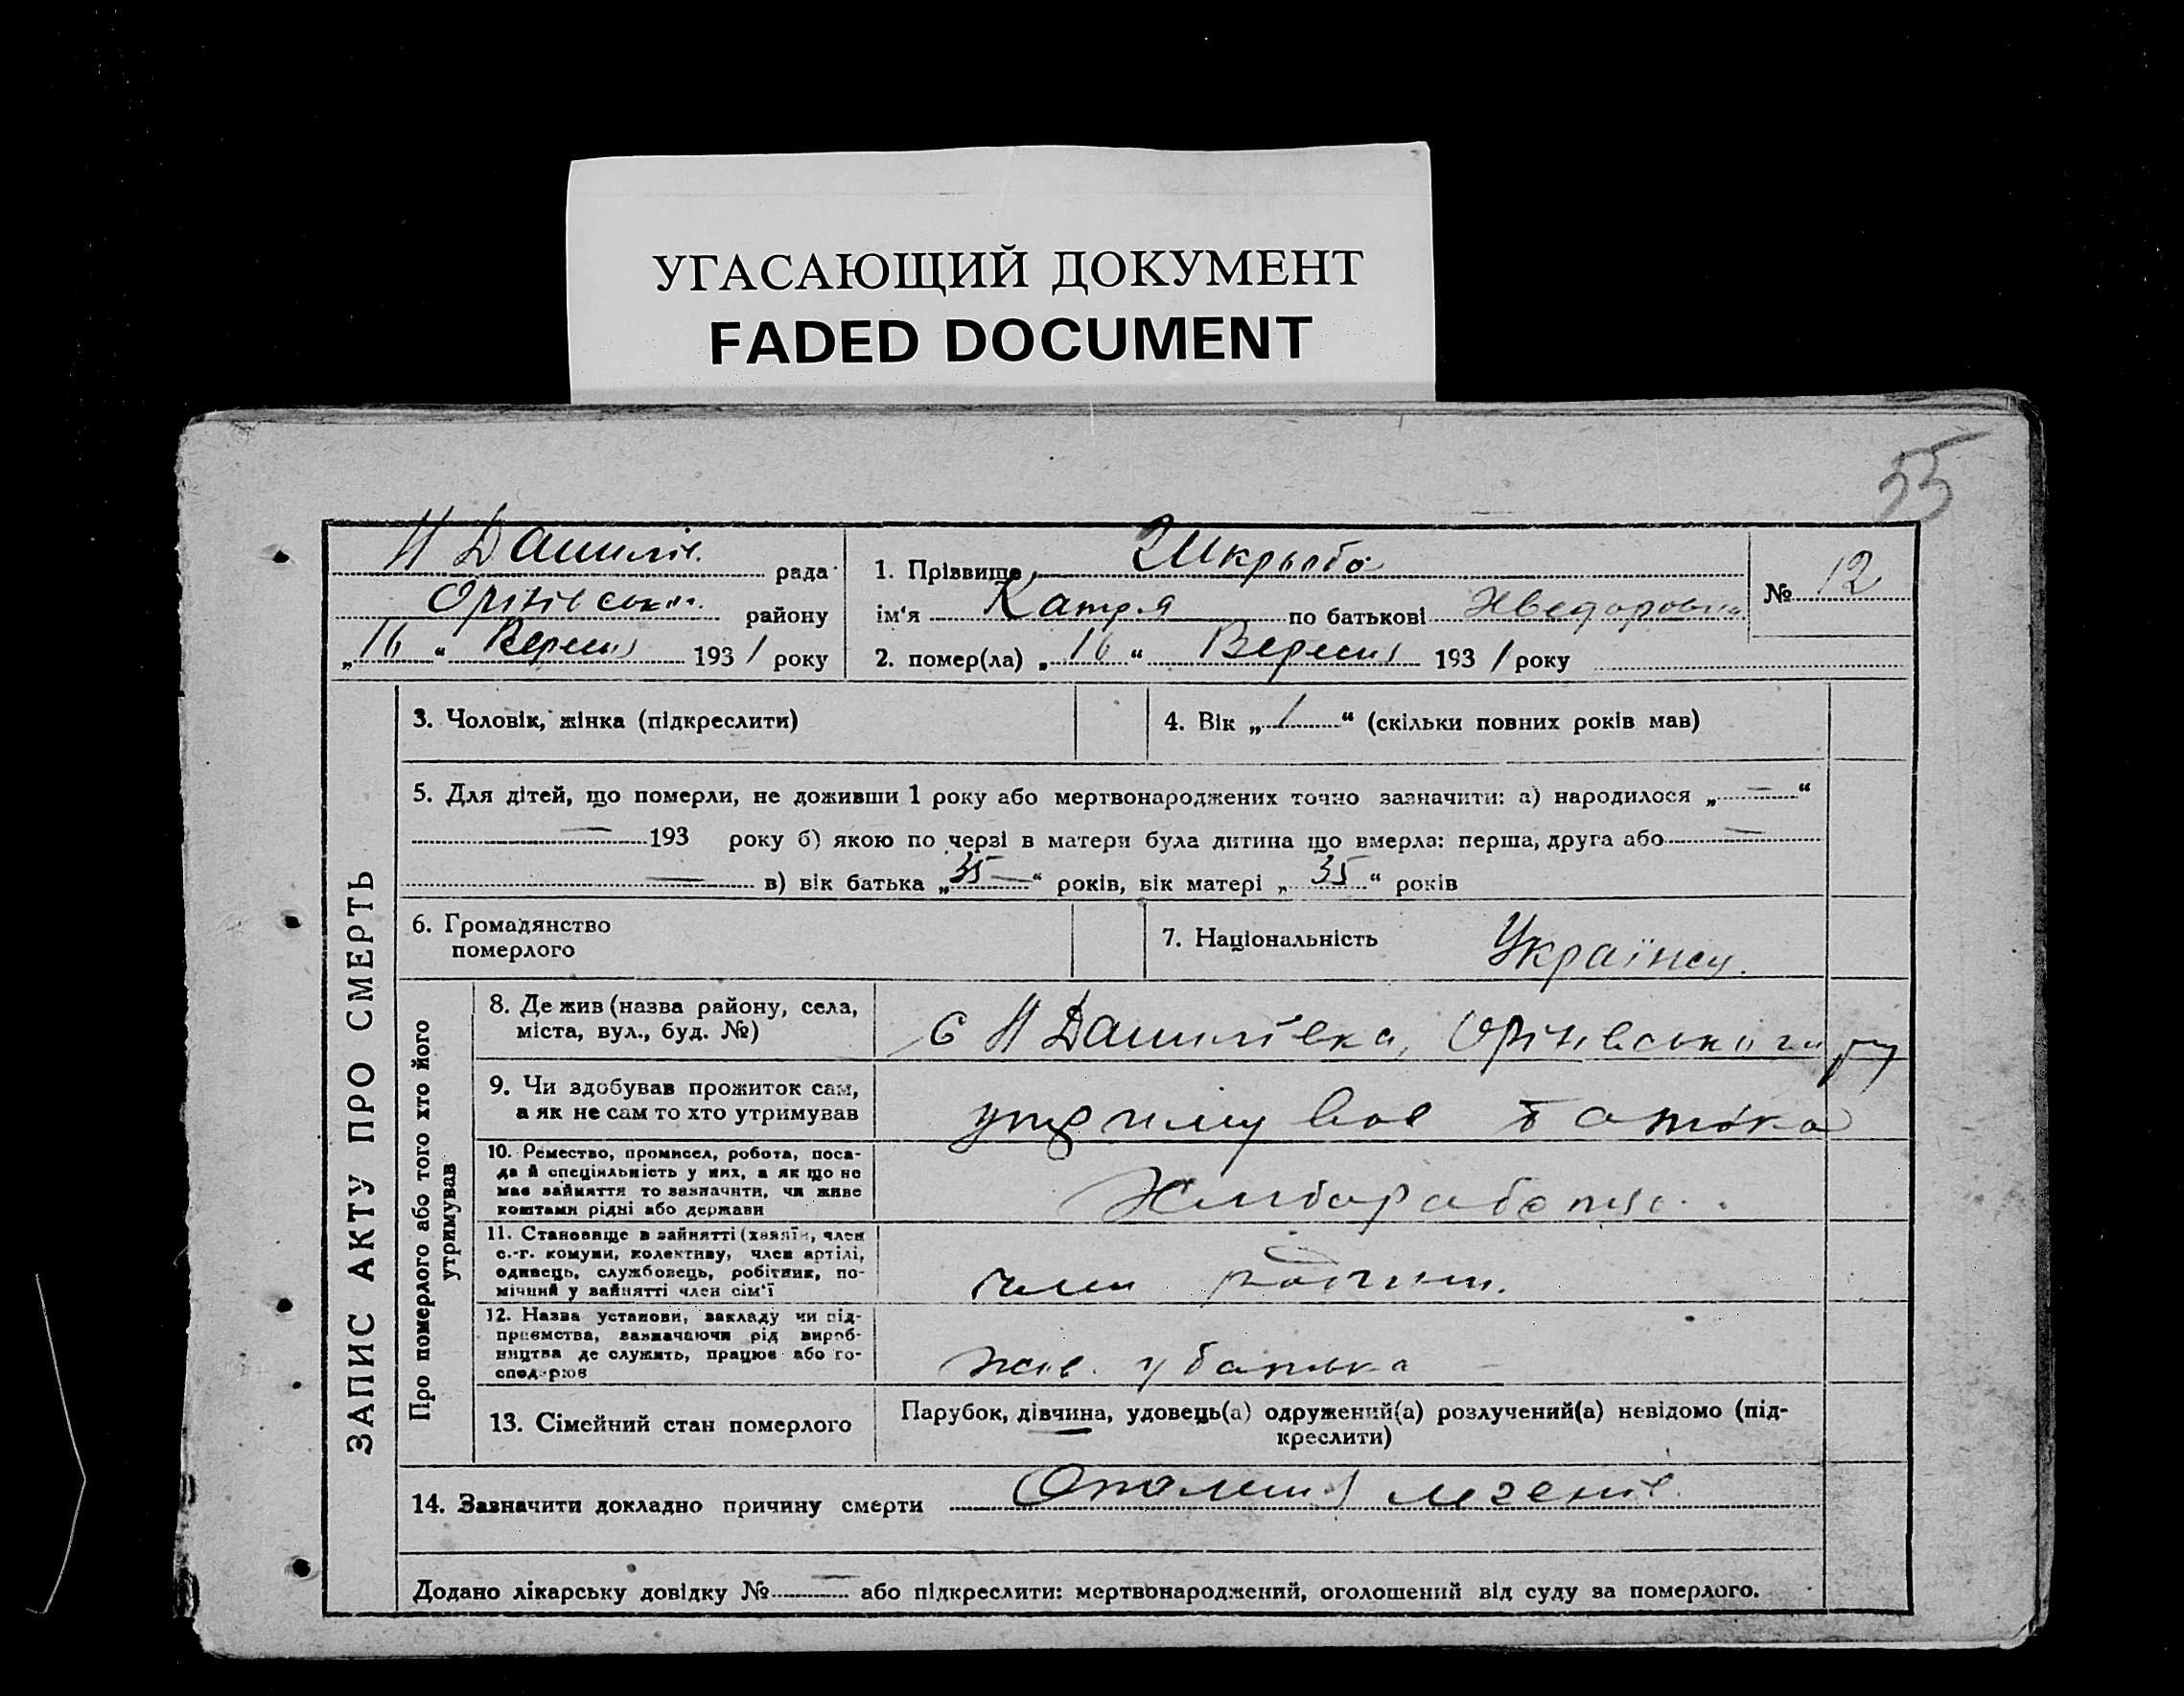 УГАСАЮЩИЙ ДОКУМЕНТ
FADED DOCUMENT
55
Н Данилів. рада
Орінівськ. району
„16“ Вересня 1931 року
1. Прізвище Шкрьоба
ім‘я Катря по батькові Хведоровна
№ 12
2. помер(ла) „16“ Вересня 1931 року
ЗАПИС АКТУ ПРО СМЕРТЬ
3. Чоловік, жінка (підкреслити)
4. Вік „1“ (скільки повних років мав)
5. Для дітей, що померли, не доживши 1 року або мертвонароджених точно зазначити: а) народилося „—“
— 193 року б) якою по черзі в матери була дитина що вмерла: перша, друга або —
— в) вік батька „35—“ років, вік матері „35“ років
6. Громадянство
померлого
7. Національність Українец.
Про померлого або того хто його
утримував
8. Де жив (назва району, села,
міста, вул., буд. №)
С Н Данилівка, Орінівського р-ну
9. Чи здобував прожиток сам,
а як не сам то хто утримував
утримував батько
10. Ремество, промисел, робота, поса-
да й спеціяльність у них, а як що не
має вайняття то зазначити, чи живе
коштами рідні або держави
Хлібороб
11. Становище в зайнятті (хазяїн, член
с.-г. комуни, колективу, член артілі,
одинець, службовець, робітник, по-
мічний у зайнятті член сім‘ї
член
12. Назва установи, закладу чи під-
приємства, зазначаючи рід вироб-
ництва де служить, працює або го-
сподарює
жив. у батька
13. Сімейний стан померлого
Парубок, дівчина, удовець(а) одружений(а) розлучений(а) невідомо (під-
креслити)
14. Зазначити докладно причину смерти Опалення легенів.
Додано лікарську довідку № — або підкреслити: мертвонароджений, оголошений від суду за померлого.